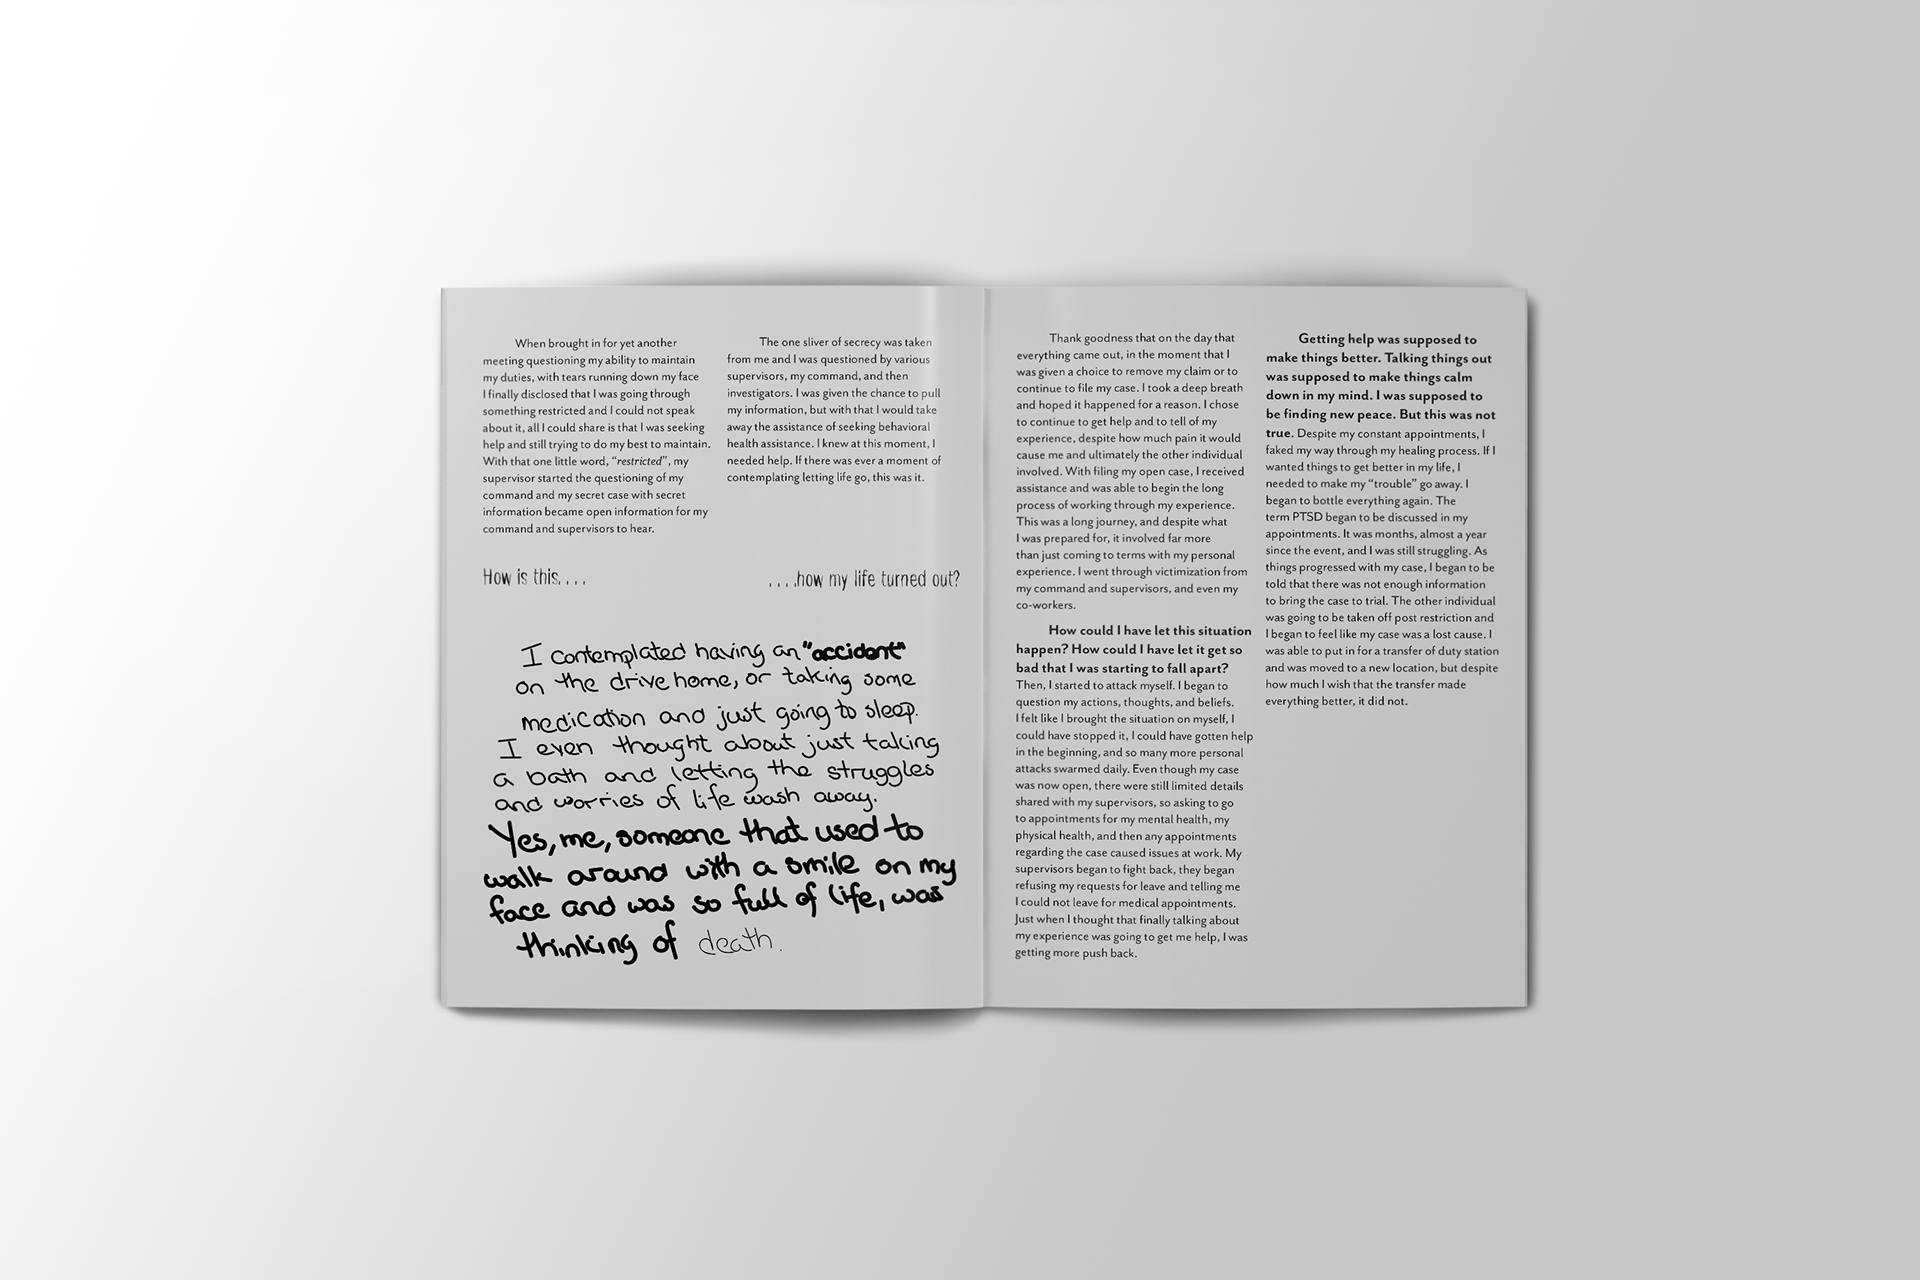 When brought in for yet another
meeting questioning my ability to maintain
my duties, with tears running down my face
I finally disclosed that I was going through
something restricted and I could not speak
about it, all I could share is that I was seeking
help and still trying to do my best to maintain.
With that one little word, “restricted”, my
supervisor started the questioning of my
command and my secret case with secret
information became open information for my
command and supervisors to hear.
The one sliver of secrecy was taken
from me and I was questioned by various
supervisors, my command, and then
investigators. I was given the chance to pull
my information, but with that I would take
away the assistance of seeking behavioral
health assistance. I knew at this moment, I
needed help. If there was ever a moment of
contemplating letting life go, this was it.
How is this. . . .
. . . .how my life turned out?
I contemplated having an "accident"
on the drive home, or taking some
medication and just going to sleep.
I even thought about just taking
a bath and letting the struggles
and worries of life wash away.
Yes, me, someone that used to
walk around with a smile on my
face and was so full of life, was
thinking of death.
Thank goodness that on the day that
everything came out, in the moment that I
was given a choice to remove my claim or to
continue to file my case. I took a deep breath
and hoped it happened for a reason. I chose
to continue to get help and to tell of my
experience, despite how much pain it would
cause me and ultimately the other individual
involved. With filing my open case, I received
assistance and was able to begin the long
process of working through my experience.
This was a long journey, and despite what
I was prepared for, it involved far more
than just coming to terms with my personal
experience. I went through victimization from
my command and supervisors, and even my
co-workers.
How could I have let this situation
happen? How could I have let it get so
bad that I was starting to fall apart?
Then, I started to attack myself. I began to
question my actions, thoughts, and beliefs.
I felt like I brought the situation on myself, I
could have stopped it, I could have gotten help
in the beginning, and so many more personal
attacks swarmed daily. Even though my case
was now open, there were still limited details
shared with my supervisors, so asking to go
to appointments for my mental health, my
physical health, and then any appointments
regarding the case caused issues at work. My
supervisors began to fight back, they began
refusing my requests for leave and telling me
I could not leave for medical appointments.
Just when I thought that finally talking about
my experience was going to get me help, I was
getting more push back.
Getting help was supposed to
make things better. Talking things out
was supposed to make things calm
down in my mind. I was supposed to
be finding new peace. But this was not
true. Despite my constant appointments, I
faked my way through my healing process. If I
wanted things to get better in my life, I
needed to make my “trouble” go away. I
began to bottle everything again. The
term PTSD began to be discussed in my
appointments. It was months, almost a year
since the event, and I was still struggling. As
things progressed with my case, I began to be
told that there was not enough information
to bring the case to trial. The other individual
was going to be taken off post restriction and
I began to feel like my case was a lost cause. I
was able to put in for a transfer of duty station
and was moved to a new location, but despite
how much I wish that the transfer made
everything better, it did not.